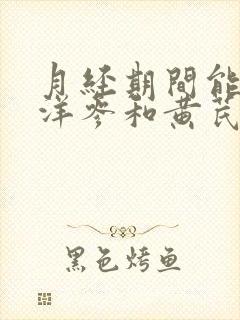 月経期間能
洋參和黄芪
黑色烤鱼